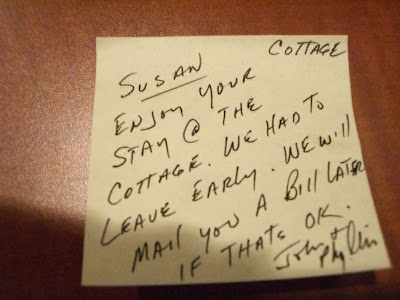 COTTAGE
SUSAN
ENJOY YOUR
STAY @ THE
COTTAGE. WE HAD TO
LEAVE EARLY. WE WILL
MAIL YOU A BILL LATER
IF THATS OK.
John +
Phyllis